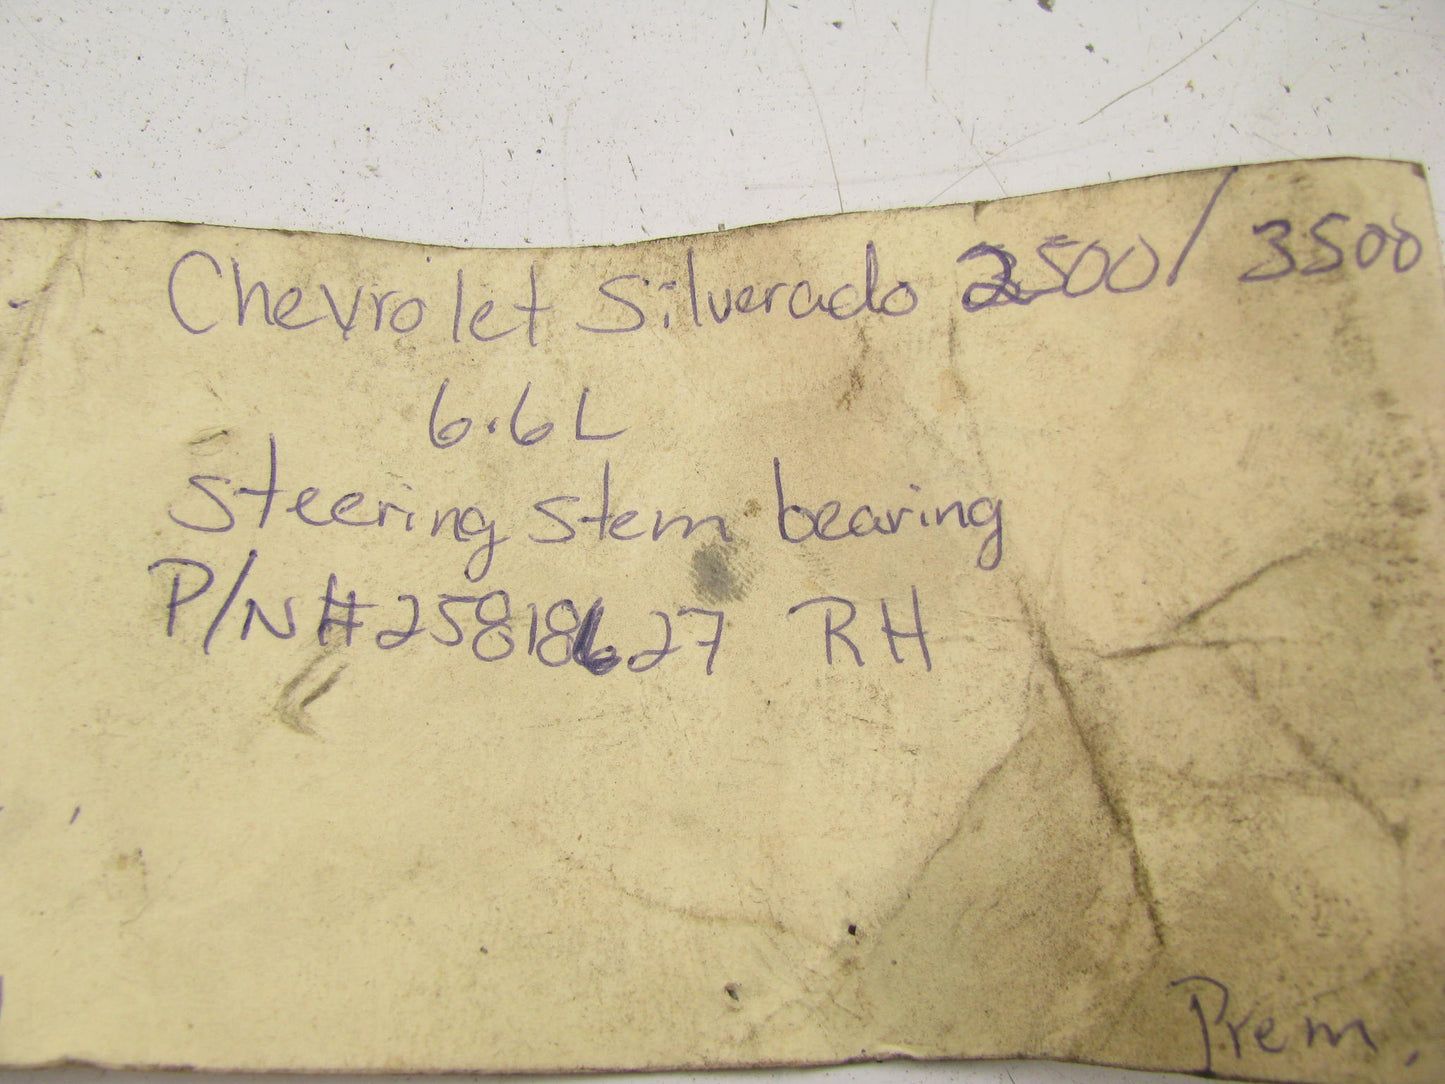 Chevrolet Silverado 2500/3500
6.6L
steering stem bearing
P/N# 25818627 RH
Prem.